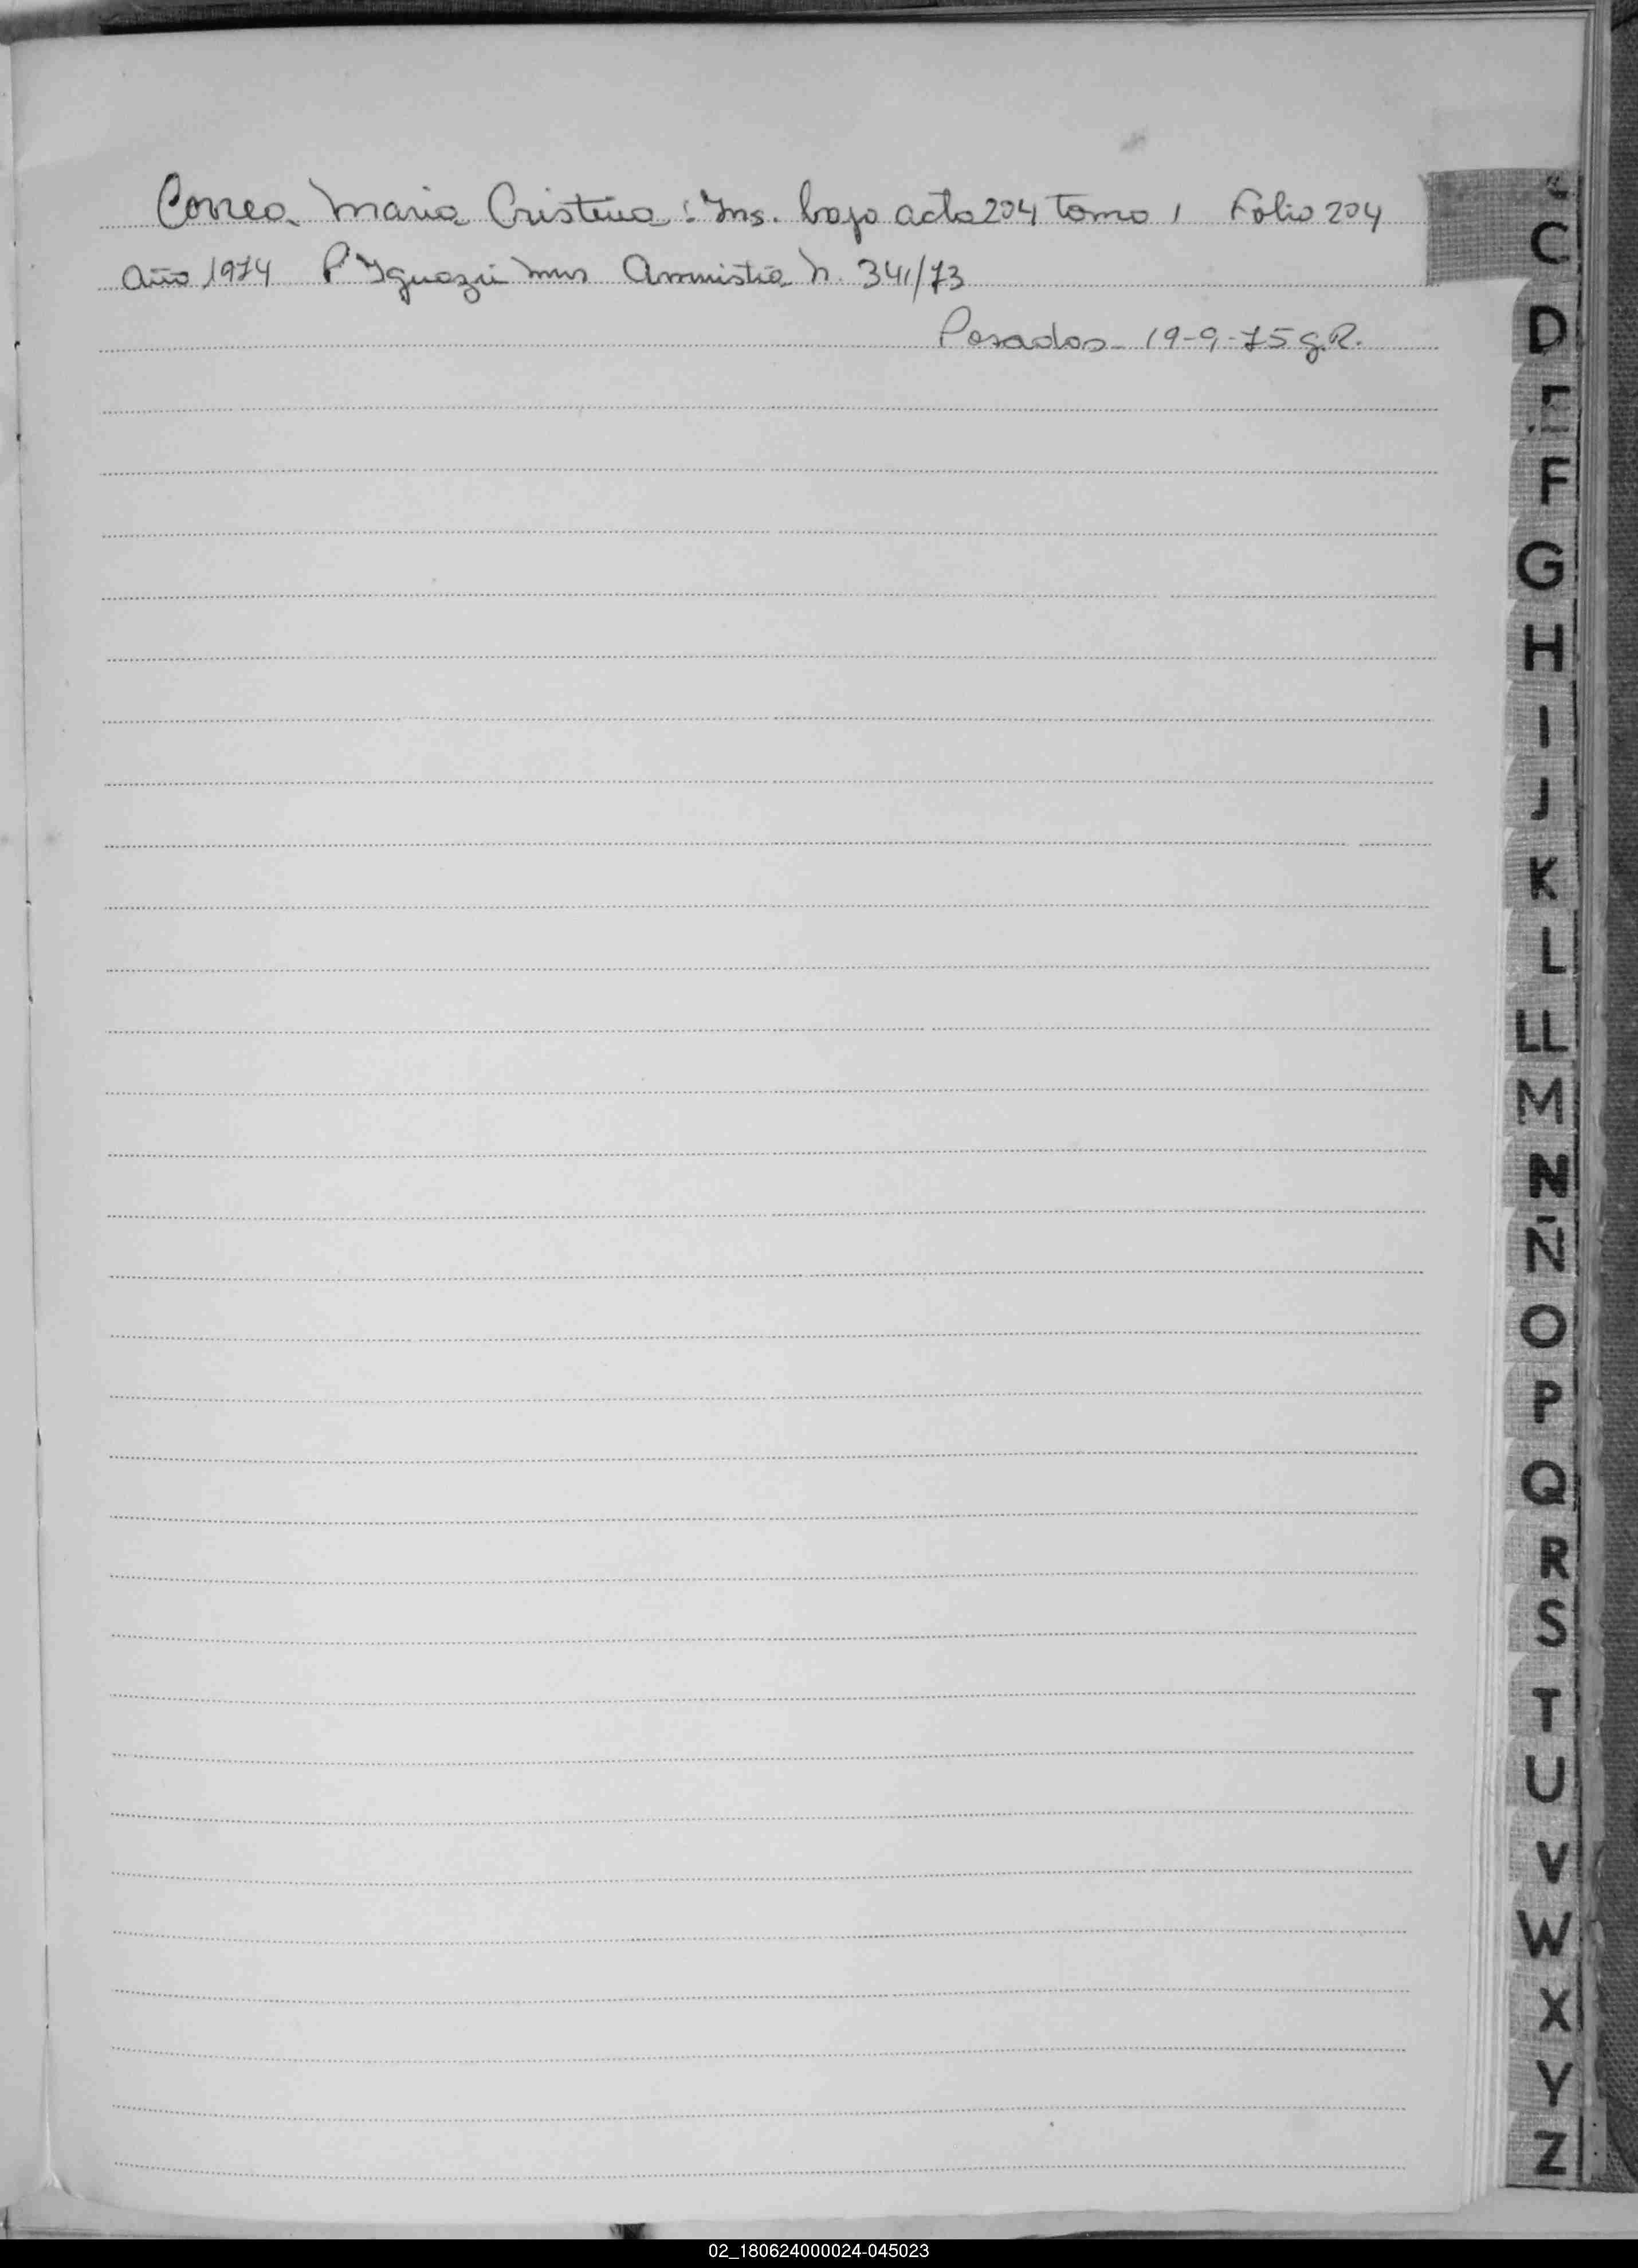 Correa Maria Cristina: Ins. bajo acta 204 Tomo 1 Folio 204
Año 1974 P. Iguazú Mns Amnistia N. 341/73
Posadas 19-9-75 g.R.
C
D
E
F
G
H
I
J
K
L
LL
M
N
Ñ
O
P
Q
R
S
T
U
V
W
X
Y
Z
02_180624000024-045023